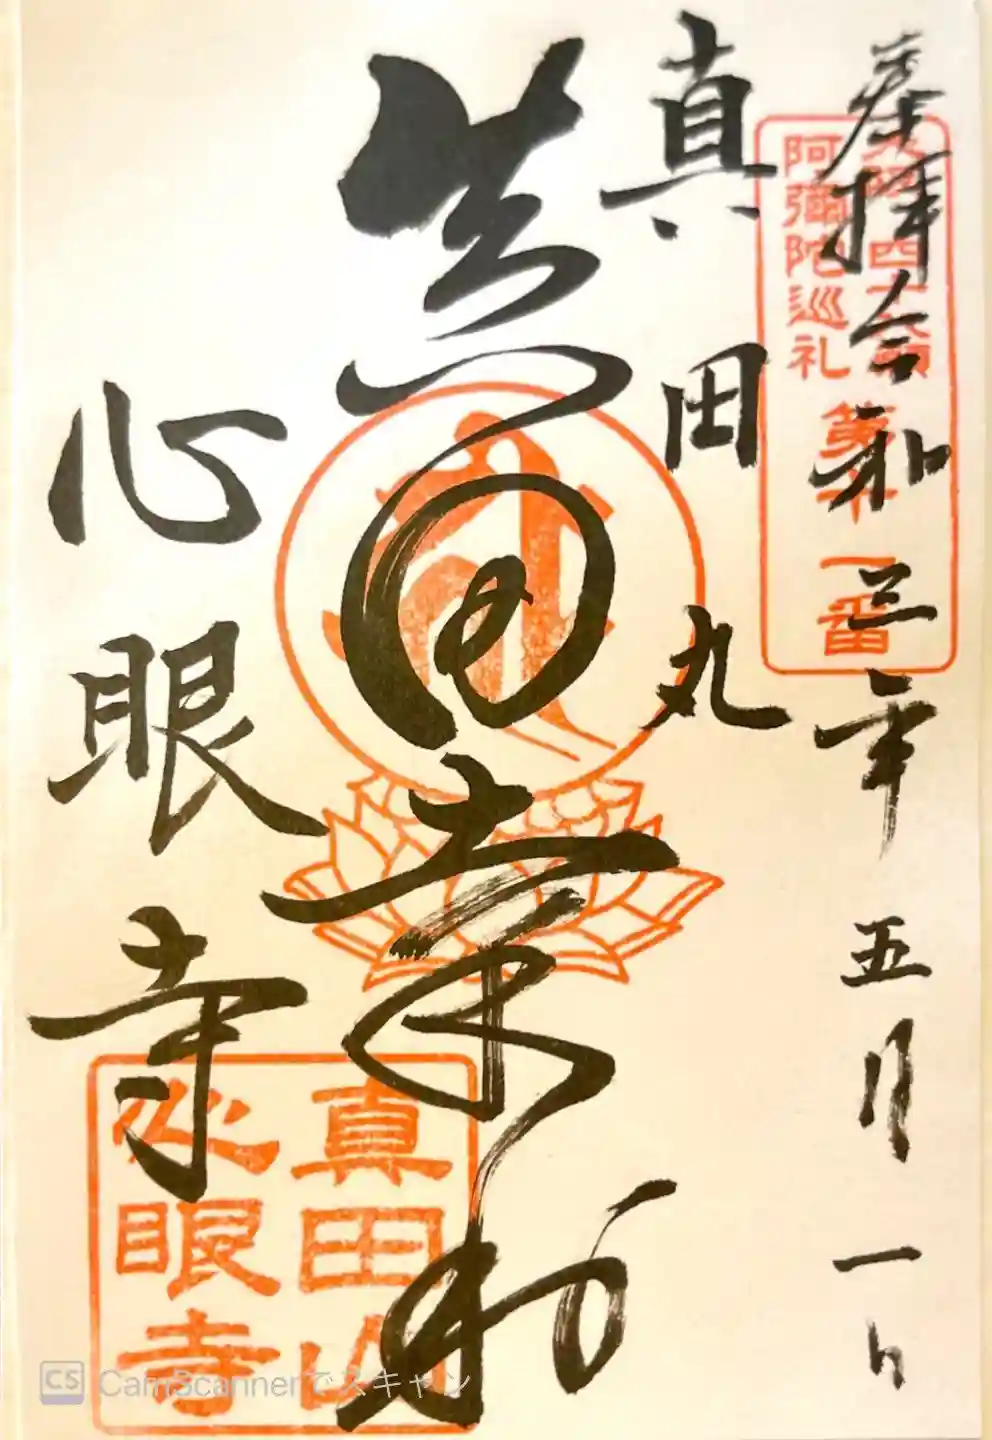 奉拝 令和三年五月一日
大阪四十八願
阿彌陀巡礼
第十一番
真田丸
真田幸村
心眼寺
真田山
心眼寺
CS CamScannerでスキャン